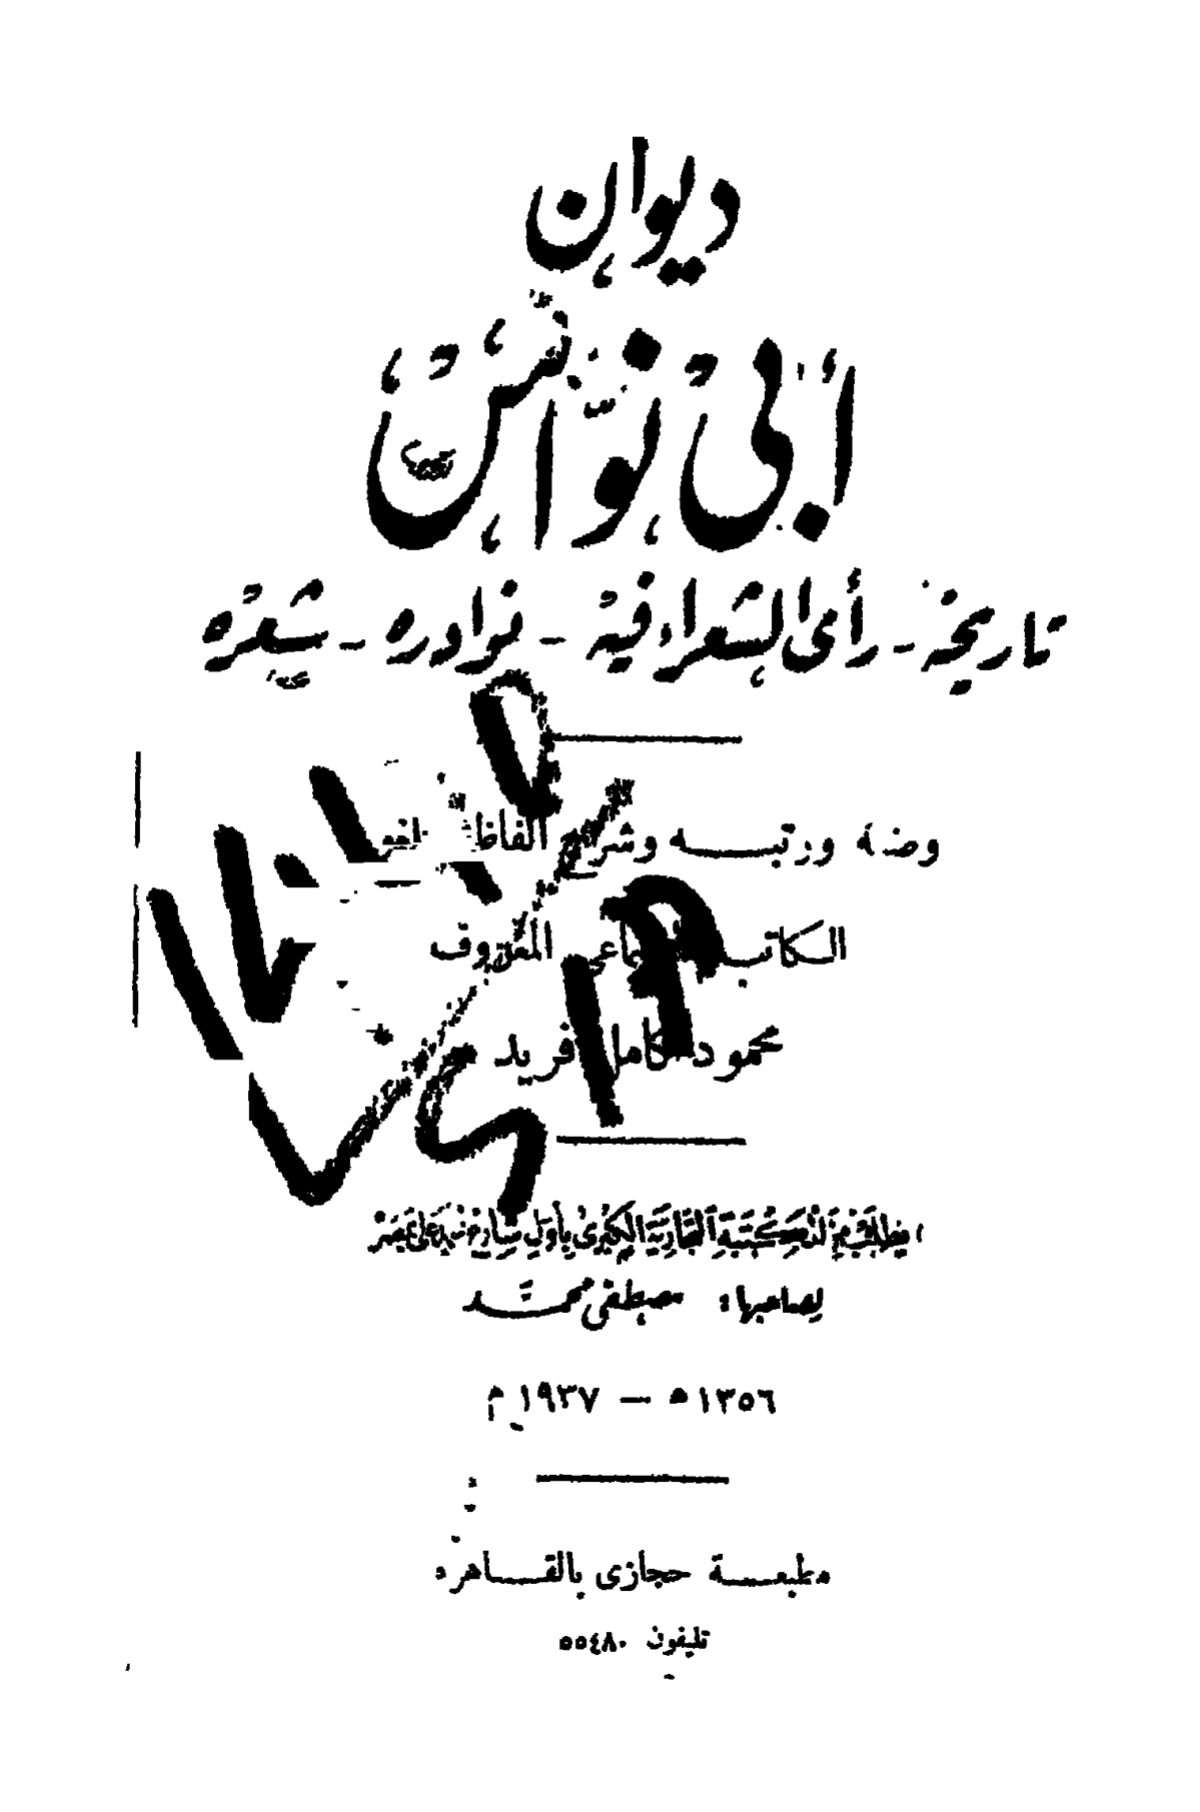 ديوان
أبي نواس
تاريخه - رأى الشعراء فيه - نوادره - شعره
ورتبه وشرح ألفاظه
الكاتب المعروف
محمود كامل فريد
يطلب من المكتبة التجارية الكبرى بأول شارع محمد على بمصر
لصاحبها : مصطفى محمد
١٣٥٦ ه — ١٩٣٧ م
مطبعة حجازى بالقاهرة
تليفون ٥٥٤٨٠